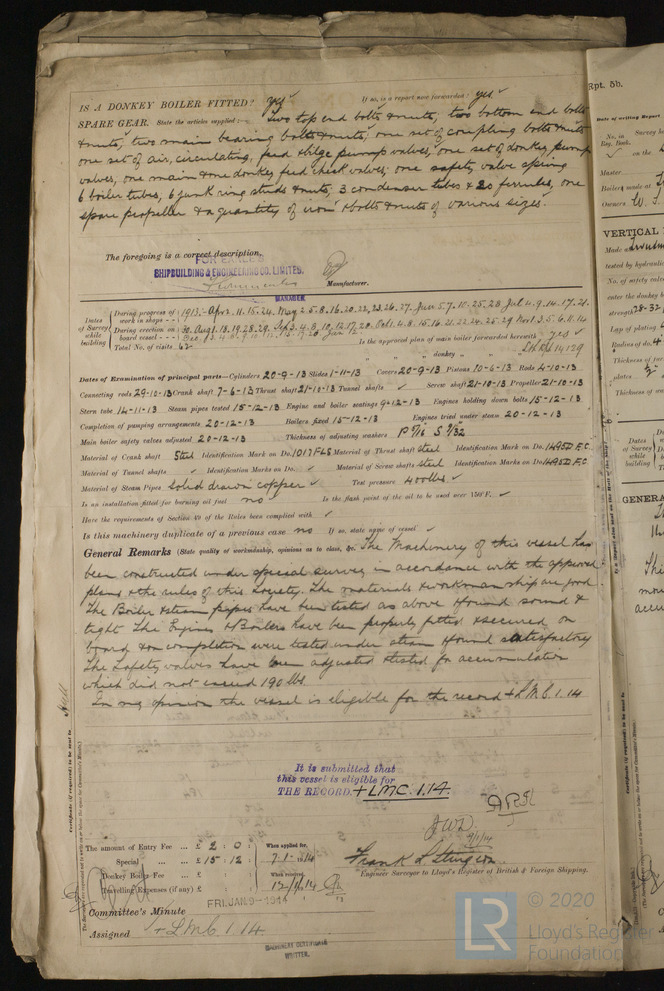 IS A DONKEY BOILER FITTED? yes If so, is a report now forwarded? yes
SPARE GEAR. State the articles supplied:— Two top end bolts & nuts, two bottom end bolts
& nuts, two main bearing bolts & nuts, one set of coupling bolts & nuts
one set of air, circulating, feed & bilge pump valves, one set of donkey pump
valves, one main & one donkey feed check valves, one safety valve spring
6 boiler tubes, 6 junk ring studs & nuts, 3 condenser tubes & 20 ferrules, one
spare propeller & a quantity of iron & bolts & nuts of various sizes.
The foregoing is a correct description,
SHIPBUILDING & ENGINEERING CO. LIMITED.
Manufacturer.
MANAGER
Dates of Survey while building
During progress of work in shops - - 1913:- Apr. 11. 15. 24. May 2. 5. 8. 16. 20. 22. 23. 26. 27. Jun 5. 7. 10. 25. 28 Jul 4. 9. 14. 17. 21.
During erection on board vessel - - -
Total No. of visits 62
Is the approval plan of main boiler forwarded herewith yes
" " " donkey " " "
Dates of Examination of principal parts—Cylinders 20-9-13 Slides 1-11-13 Covers 20-9-13 Pistons 10-6-13 Rods 4-10-13
Connecting rods 29-10-13 Crank shaft 7-6-13 Thrust shaft 21-10-13 Tunnel shafts ✓ Screw shaft 21-10-13 Propeller 21-10-13
Stern tube 14-11-13 Steam pipes tested 15-12-13 Engine and boiler seatings 9-12-13 Engines holding down bolts 15-12-13
Completion of pumping arrangements 20-12-13 Boilers fixed 15-12-13 Engines tried under steam 20-12-13
Main boiler safety valves adjusted 20-12-13 Thickness of adjusting washers P 7/16 S 9/32
Material of Crank shaft Steel Identification Mark on Do. 1017 FLS Material of Thrust shaft Steel Identification Mark on Do. 1495D F.C.
Material of Tunnel shafts ✓ Identification Marks on Do. ✓ Material of Screw shafts Steel Identification Marks on Do. 1495D F.C
Material of Steam Pipes Solid drawn copper ✓ Test pressure 400 lbs ✓
Is an installation fitted for burning oil fuel no ✓ Is the flash point of the oil to be used over 150°F. ✓
Have the requirements of Section 49 of the Rules been complied with ✓
Is this machinery duplicate of a previous case no If so, state name of vessel ✓
General Remarks (State quality of workmanship, opinions as to class, &c. The Machinery of this vessel has
been constructed under special survey in accordance with the approved
plans & the rules of this Society. The materials & workmanship are good.
The Boiler & steam pipes have been tested as above & found sound &
tight The Engines & Boilers have been properly fitted & secured on
board & on completion were tested under steam & found satisfactory
The Safety valves have been adjusted & tested for accumulation
which did not exceed 190 lbs.
In my opinion the vessel is eligible for the record + L.M.C. 1.14
It is submitted that
this vessel is eligible for
THE RECORD. + LMC. 1.14.
The amount of Entry Fee ... £ 2 : 0 : When applied for,
Special ... ... £ 15 : 12 : 7.1.1914
Donkey Boiler Fee ... £ : : When received,
Travelling Expenses (if any) £ : :
Frank L Sturgeon
Engineer Surveyor to Lloyd's Register of British & Foreign Shipping.
Committee's Minute FRI. JAN. 9 - 1914
Assigned + L.M.C. 1.14.
MACHINERY CERTIFICATE
WRITTEN.
Rpt. 5b.
VERTICAL
GENERA
© 2020
Lloyd's Register
Foundation